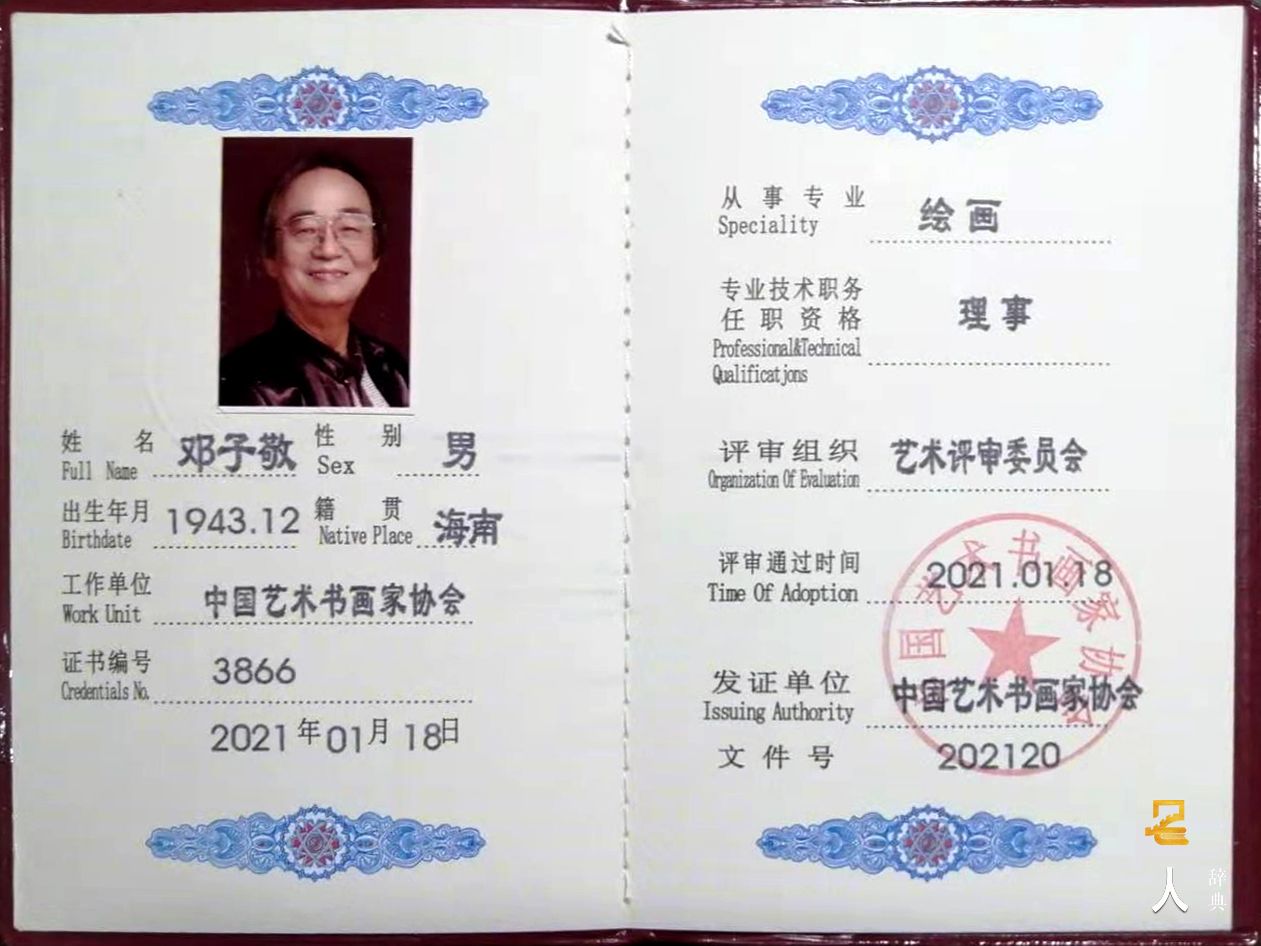 姓名 邓子敬 性别 男
Full Name Sex
出生年月 1943.12 籍贯 海南
Birthdate Native Place
工作单位 中国艺术书画家协会
Work Unit
证书编号 3866
Credentials No.
2021年01月18日
从事专业 绘画
Speciality
专业技术职务
任职资格 理事
Professional&Technical
Qualifications
评审组织 艺术评审委员会
Organization Of Evaluation
评审通过时间 2021.01.18
Time Of Adoption
发证单位 中国艺术书画家协会
Issuing Authority
文件号 202120
中国艺术书画家协会
名
人
辞典